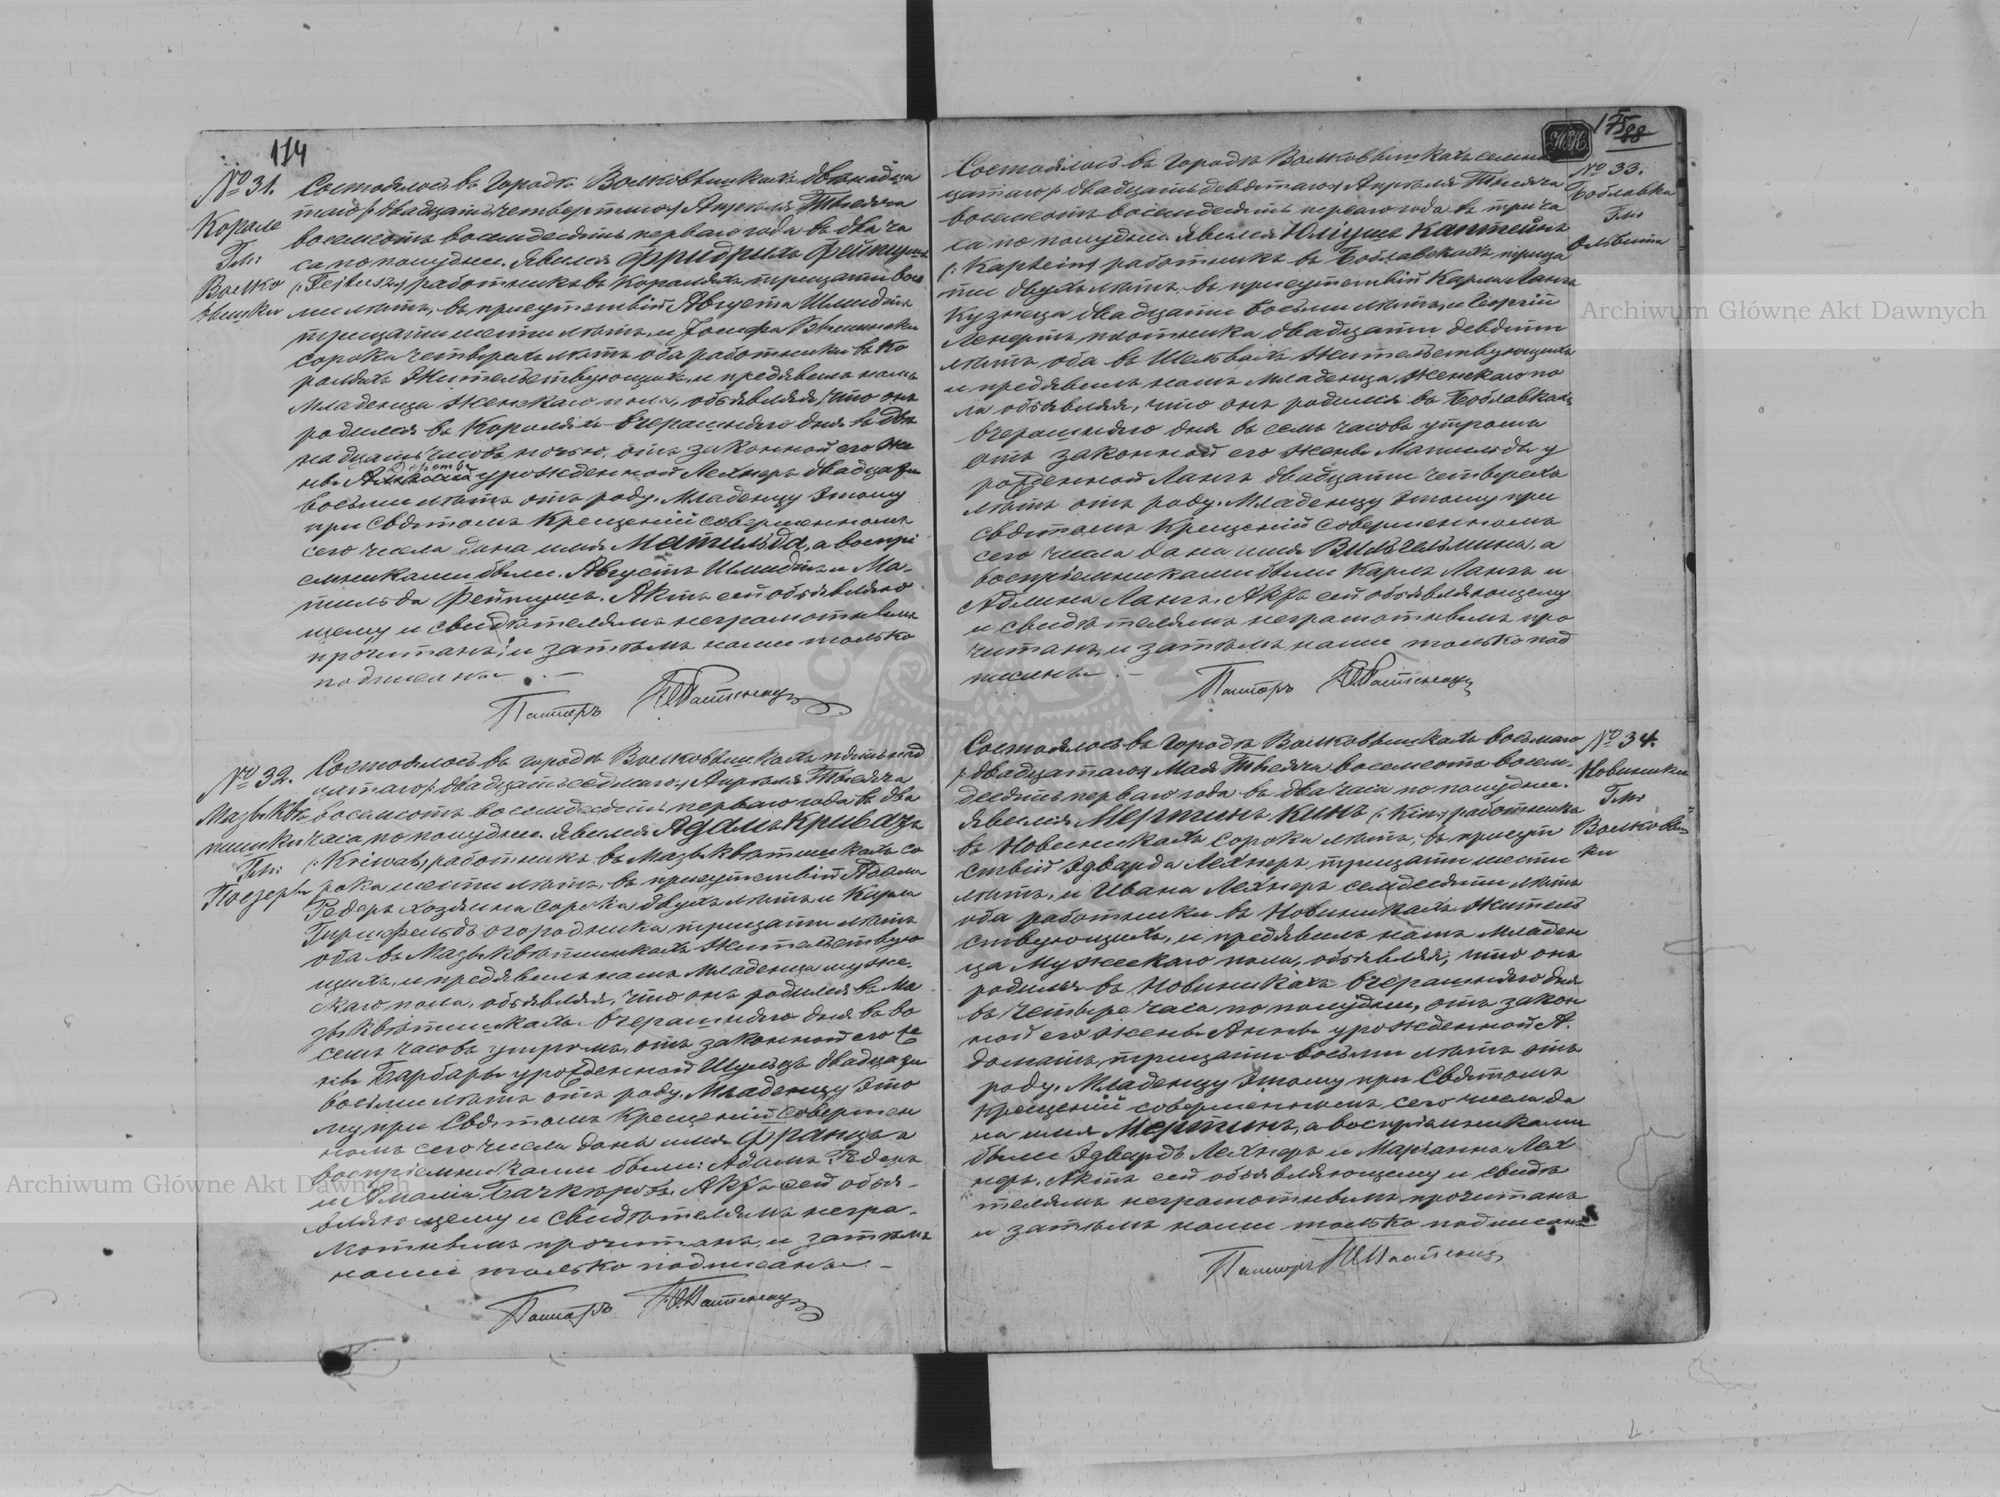 114
№ 31.
Короле
Гми:
Волко
вышки
Состоялось въ городѣ Волковышкахъ двѣнадца
таго /: двадцать четвертаго :/ Апрѣля Тысяча
восемсотъ восемдесятъ перваго года въ два ча
са по полудни. Явился Фридрихъ Фейтушъ
(: Fejtusz :) работникъ въ Короляхъ, тридцати вось
ми лѣтъ, въ присутствіи Августа Шмидтъ
тридцати шести лѣтъ, и Іосифа
сорока четырехъ лѣтъ оба работники въ Ко
роляхъ жительствующихъ, и предъявилъ намъ
младенца женскаго пола, объявляя, что онъ
родился въ Короляхъ вчерашняго дня въ двѣ
надцать часовъ ночью, отъ законной его же
ны урожденной Лехнеръ двадцати
восьми лѣтъ отъ роду. Младенцу этому
при Святомъ Крещеніи совершенномъ
сего числа дано имя Матильда, а воспрі
емниками были: Августъ Шмидтъ и Ма-
тильда Фейтушъ. Актъ сей объявляю
щему и свидѣтелямъ неграмотнымъ
прочитанъ, и затѣмъ нами только
подписанъ. —
Пасторъ
№ 32.
Мазыквѣ
тишки
Гми:
Поезеры
Состоялось въ городѣ Волковышкахъ пятьнад
цатаго /: двадцать седмаго :/ Апрѣля Тысяча
восемсотъ восемдесятъ перваго года въ два
часа по полудни. Явился Адамъ Кривацъ
(: Kriwatz :) работникъ въ Мазыквѣтишкахъ со
рока шести лѣтъ, въ присутствіи Адама
Редеръ хозяина сорока двухъ лѣтъ и Карла
Гиршфельдъ огородника тридцати лѣтъ
оба въ Мазыквѣтишкахъ жительствую
щихъ, и предъявилъ намъ младенца муже-
скаго пола, объявляя, что онъ родился въ Ма
зыквѣтишкахъ вчерашняго дня въ во
семь часовъ утромъ, отъ законной его же
ны Барбары урожденной Шульцъ двадцати
восьми лѣтъ отъ роду. Младенцу это
му при Святомъ Крещеніи совершен
номъ сего числа дано имя Францъ а
воспріемниками были: Адамъ Редеръ
и Амалія Бачкеротъ. Актъ сей объя-
вляющему и свидѣтелямъ негра-
мотнымъ прочитанъ, и затѣмъ
нами только подписанъ. —
Пасторъ
175
88
№ 33.
Боблавка
Гми
Ольвита
Состоялось въ городѣ Волковышкахъ семнад
цатаго /: двадцать девятаго :/ Апрѣля Тысяча
восемсотъ восемдесятъ перваго года въ три ча
са по полудни. Явился Юліушъ Каптейнъ
(: Kaptein :) работникъ въ Боблавкахъ, тридца
ти двухъ лѣтъ, въ присутствіи Карла Лангъ
кузнеца двадцати восьми лѣтъ, и Георгій
Ленертъ плотника двадцати девяти
лѣтъ оба въ Шельвахъ жительствующихъ
и предъявилъ намъ младенца женскаго по
ла объявляя, что онъ родился въ Боблавкахъ
вчерашняго дня въ семь часовъ утромъ
отъ законной его жены Матильды у
рожденной Лангъ двадцати четырехъ
лѣтъ отъ роду. Младенцу этому при
Святомъ Крещеніи совершенномъ
сего числа дано имя Вильгельмина, а
воспріемниками были Карлъ Лангъ и
Адлина Лангъ. Актъ сей объявляющему
и свидѣтелямъ неграмотнымъ про
читанъ, и затѣмъ нами только под
писанъ. —
Пасторъ
№ 34.
Новиники
Гми
Волковы-
ки
Состоялось въ городѣ Волковышкахъ восьмаго
/: двадцатаго :/ Мая Тысяча восемсотъ восем-
десятъ перваго года въ два часа по полудни.
Явился Мертинъ Кинъ (: Kin :) работникъ
въ Новиникахъ сорока лѣтъ, въ присут
ствіи Эдварда Лехнеръ тридцати шести
лѣтъ, и Ивана Лехнеръ семдесяти лѣтъ
оба работники въ Новиникахъ житель
ствующихъ, и предъявилъ намъ младен
ца мужескаго пола, объявляя, что онъ
родился въ Новиникахъ вчерашняго дня
въ четыре часа по полудни, отъ закон
ной его жены Анны урожденной А.
доматъ, тридцати восьми лѣтъ отъ
роду. Младенцу этому при Святомъ
крещеніи совершенномъ сего числа да
но имя Мертинъ, а воспріемниками
были Эдвардъ Лехнеръ и Маріанна Лех
неръ. Актъ сей объявляющему и свидѣ
телямъ неграмотнымъ прочитанъ
и затѣмъ нами только подписанъ
Пасторъ
Archiwum Główne Akt Dawnych
Archiwum Główne Akt Dawnych